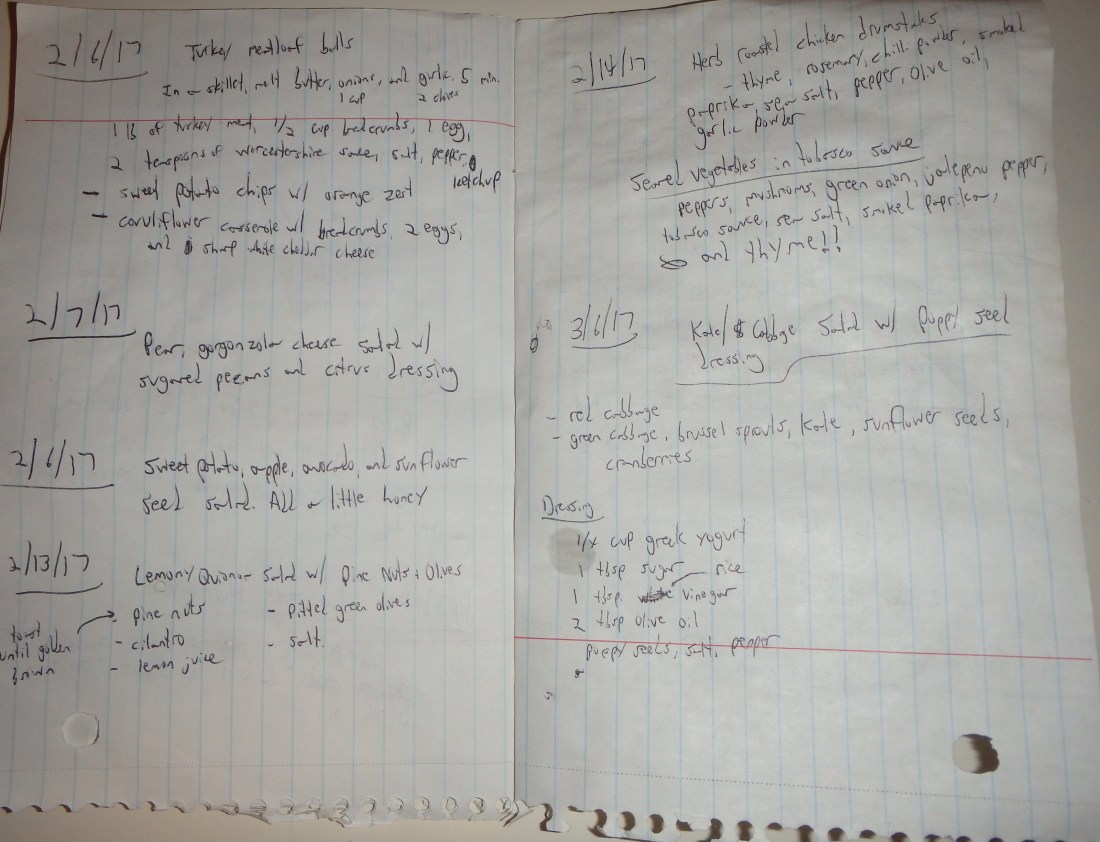 2/6/17 Turkey meatloaf balls
In a skillet, melt butter, onions, and garlic. 5 min.
1 cup 2 cloves
1 lb of turkey meat, 1/2 cup breadcrumbs, 1 egg,
2 teaspoons of worcestershire sauce, salt, pepper,
ketchup
- sweet potato chips w/ orange zest
- cauliflower casserole w/ breadcrumbs, 2 eggs,
and sharp white cheddar cheese
2/7/17
Pear, gorgonzola cheese salad w/
sugared pecans and citrus dressing
2/6/17 Sweet potato, apple, avocado, and sunflower
seed salad. Add a little honey
2/13/17 Lemony Quinoa Salad w/ Pine Nuts + Olives
pine nuts - pitted green olives
- cilantro - salt.
- lemon juice
toast
until golden
brown
2/14/17 Herb roasted chicken drumsticks
- thyme, rosemary, chili powder, smoked
paprika, sea salt, pepper, olive oil,
garlic powder
Seared vegetables in tobasco sauce
peppers, mushrooms, green onion, jalepeno pepper,
tobasco sauce, sea salt, smoked paprika,
and thyme!!
3/6/17 Kale/ Cabbage Salad w/ Puppy seed
dressing
- red cabbage
- green cabbage, brussel sprouts, kale, sunflower seeds,
cranberries
Dressing
1/4 cup greek yogurt
1 tbsp sugar rice
1 tbsp. vinegar
2 tbsp olive oil
puppy seeds, salt, pepper